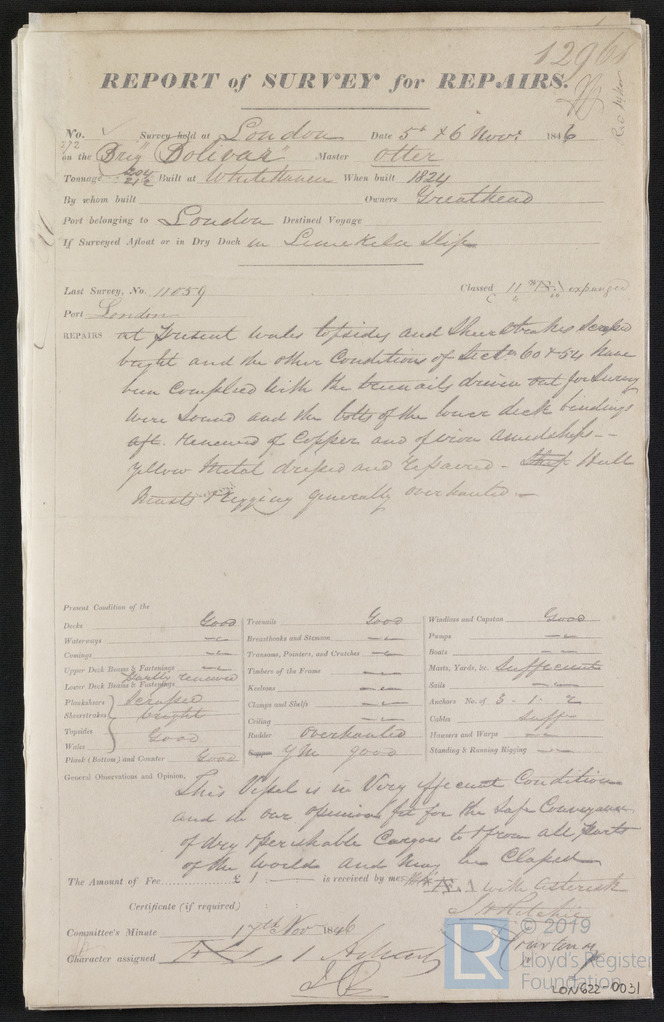 12961
REPORT of SURVEY for REPAIRS.
No. 272 Survey held at London Date 5th & 6 Novr 1846
on the Brig "Bolivar" Master Otter
Tonnage 204 212 Built at Whitehaven When built 1824
By whom built Owners Greathead
Port belonging to London Destined Voyage
If Surveyed Afloat or in Dry Dock in Limekiln Slip
Last Survey, No. 11059 Classed 11 expunged
Port London
REPAIRS at present wales topsides and Sheerstrakes scraped
bright and the other Conditions of Sectn 60 & 54 have
been complied with the treenails driven out for Survey
were sound and the bolts of the lower deck bindings
aft. renewed of Copper and of iron amidships -
Yellow Metal dressed and repaired - Ship Hull
Masts & Rigging generally overhauled -
Present Condition of the
Decks Good
Waterways
Comings
Upper Deck Beams & Fastenings
Lower Deck Beams & Fastenings Partly renewed
Planksheers scraped
Sheerstrakes bright
Topsides Good
Wales
Plank (Bottom) and Counter Good
Treenails Good
Breasthooks and Stemson
Transoms, Pointers, and Crutches
Timbers of the Frame
Keelsons
Clamps and Shelfs
Ceiling
Rudder overhauled
Copper YM good
Windlass and Capstan Good
Pumps
Boats
Masts, Yards, &c. Sufficient
Sails
Anchors No. of 3 - 1 - 2
Cables Sufft
Hawsers and Warps
Standing & Running Rigging
General Observations and Opinion, This Vessel is in Very efficient Condition
and in our opinion fit for the safe Conveyance
of dry & perishable Cargoes to & from all parts
of the World and may be Classed
Æ 1 with asterisk
The Amount of Fee £ 1 is received by me
Certificate (if required)
J H Ritchie
Committee's Minute 17th Nov 1846
Courtenay
Character assigned
© 2019
LR Lloyd's Register
Foundation
LON622-0031